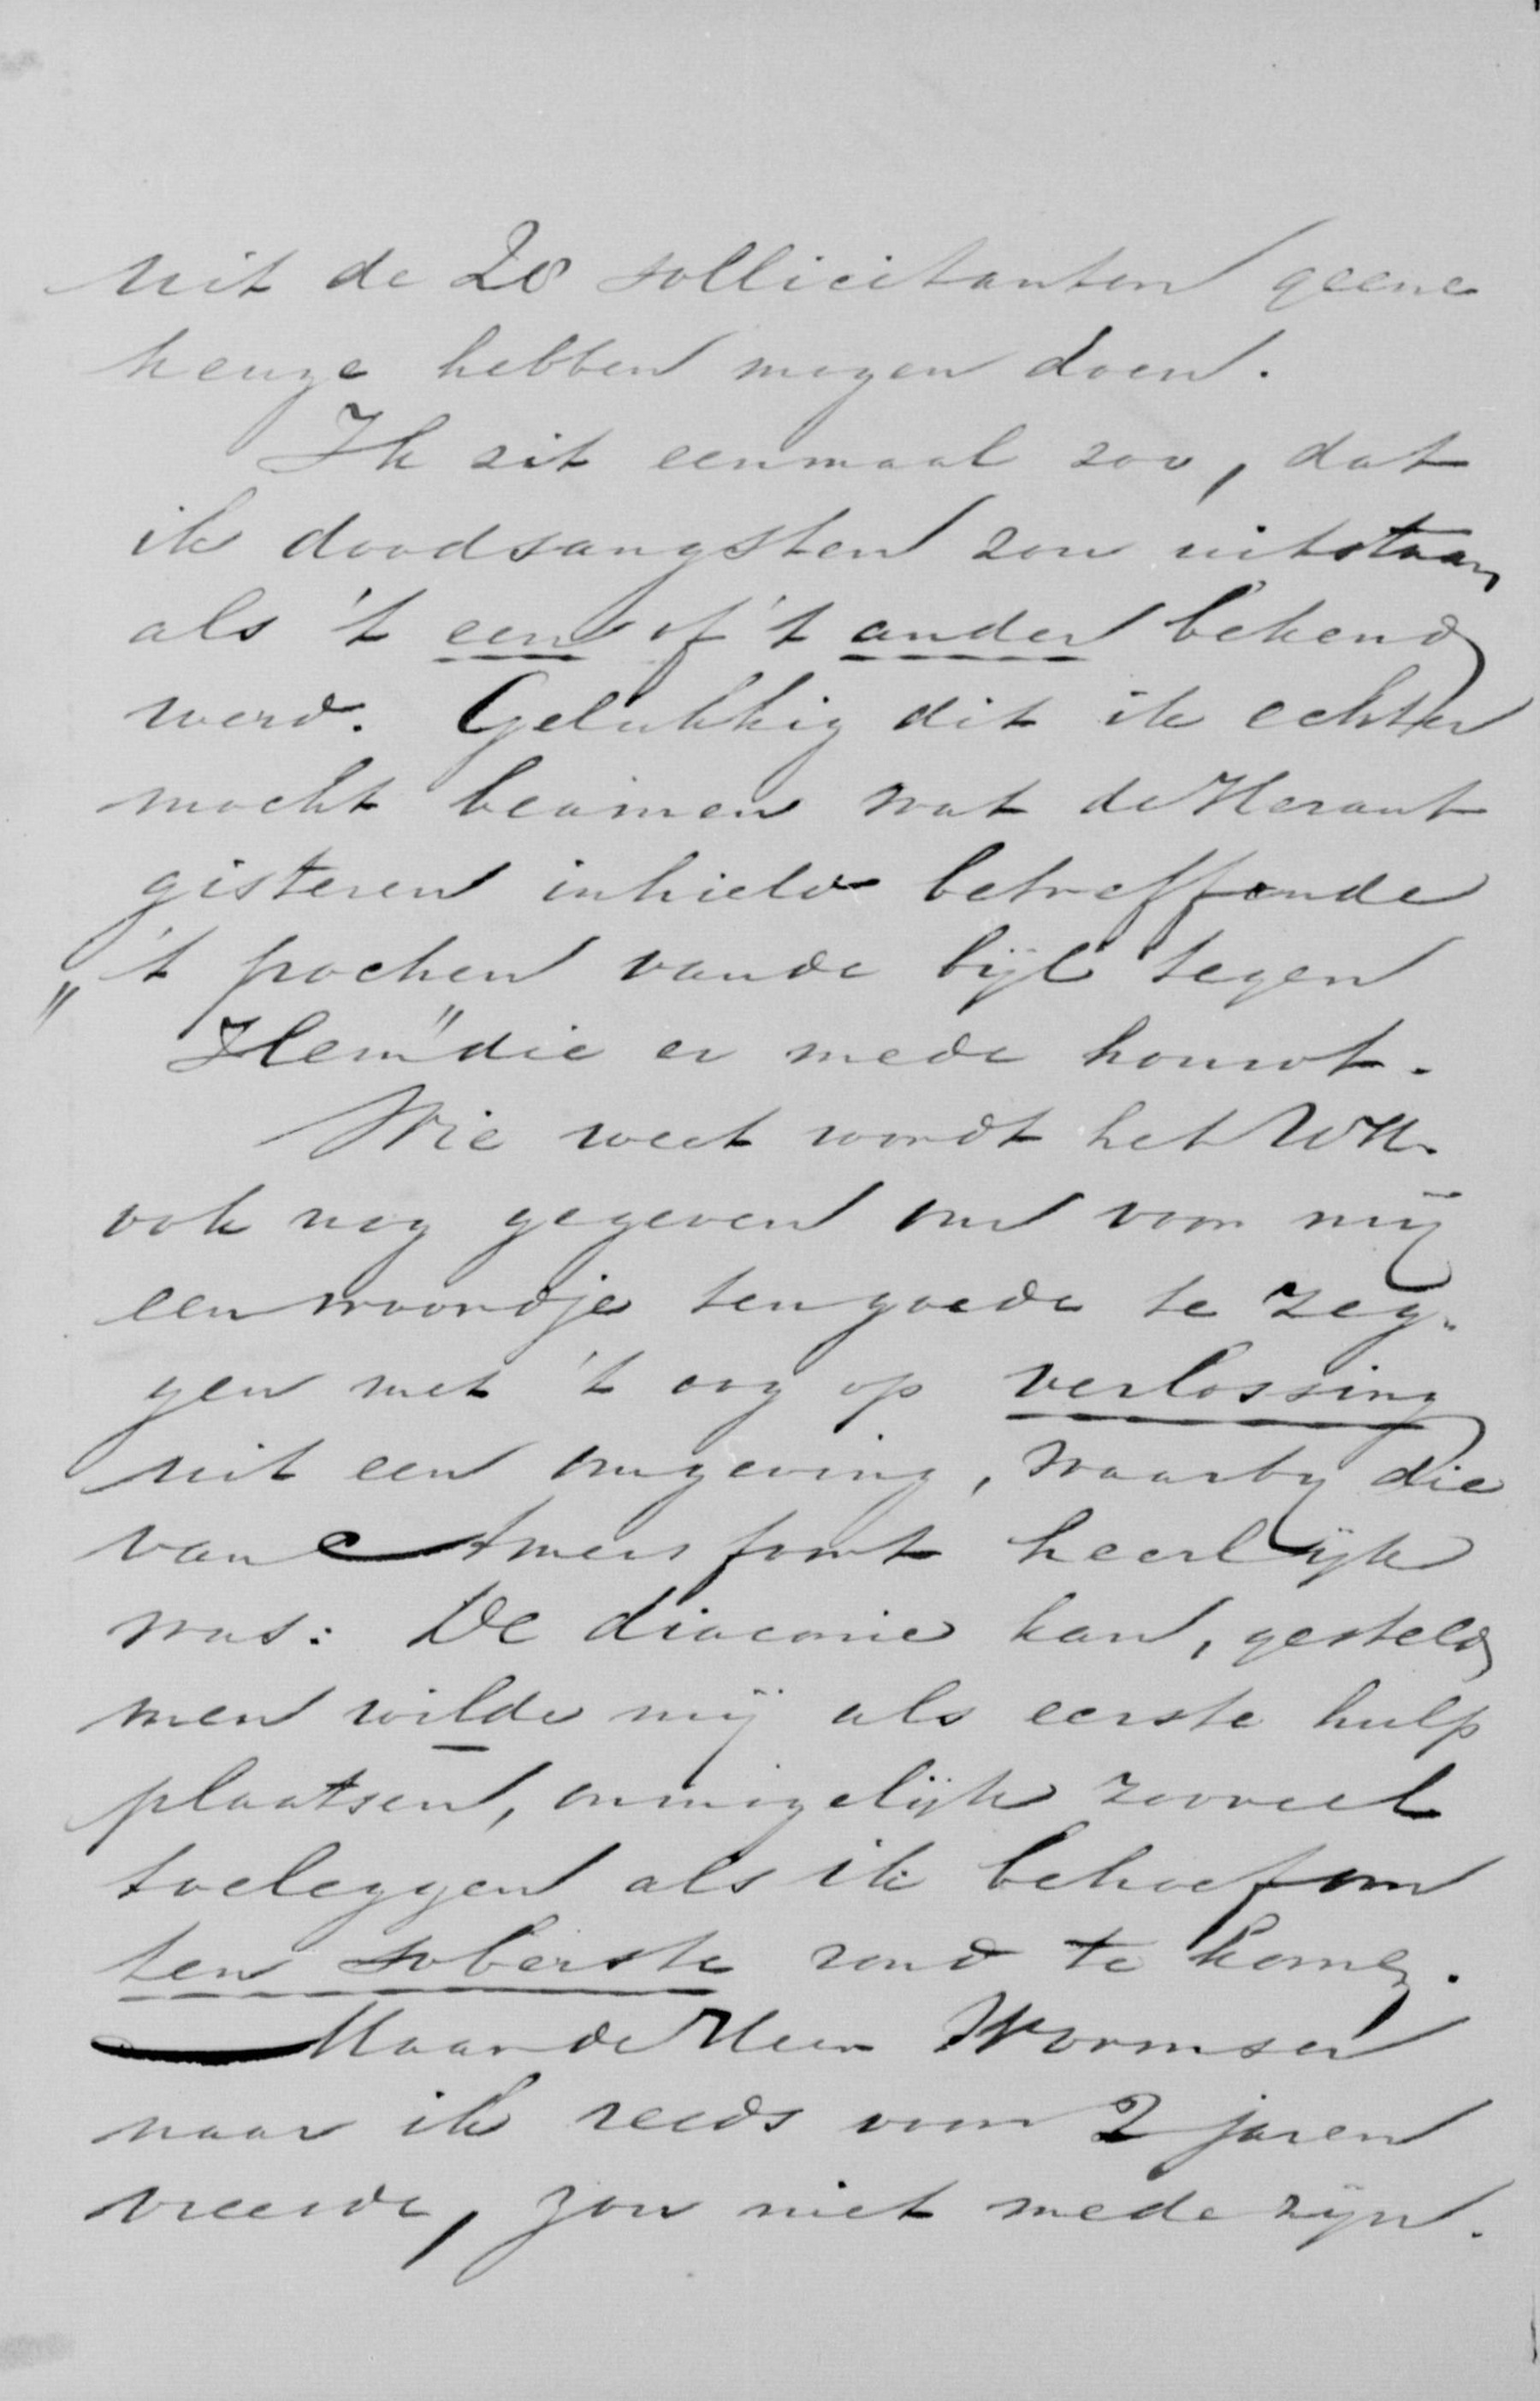 uit de 20 sollicitanten geene
keuze hebben mogen doen.
Ik zit eenmaal zoo, dat
ik doodsangsten zou uitstaan
als 't een of 't ander bekend
werd. Gelukkig dit ik echter
mocht beamen wat de Heraut
gisteren inhield betreffende
"'t pochen van de bijl tegen
Hem" die er mede houwt.
Wie weet wordt het UH.
ook nog gegeven om voor mij
een woordje ten goede te zeg-
gen met 't oog op verlossing
uit een omgeving, waarbij die
van Amersfoort heerlijk
was: De diaconie kan, gesteld
men wilde mij als eerste hulp
plaatsen, onmogelijk zooveel
toeleggen als ik behoef om
ten soberste rond te komen.
Maar de Heer Wormser
naar ik reeds voor 2 jaren
vreesde, zou niet mede zijn.